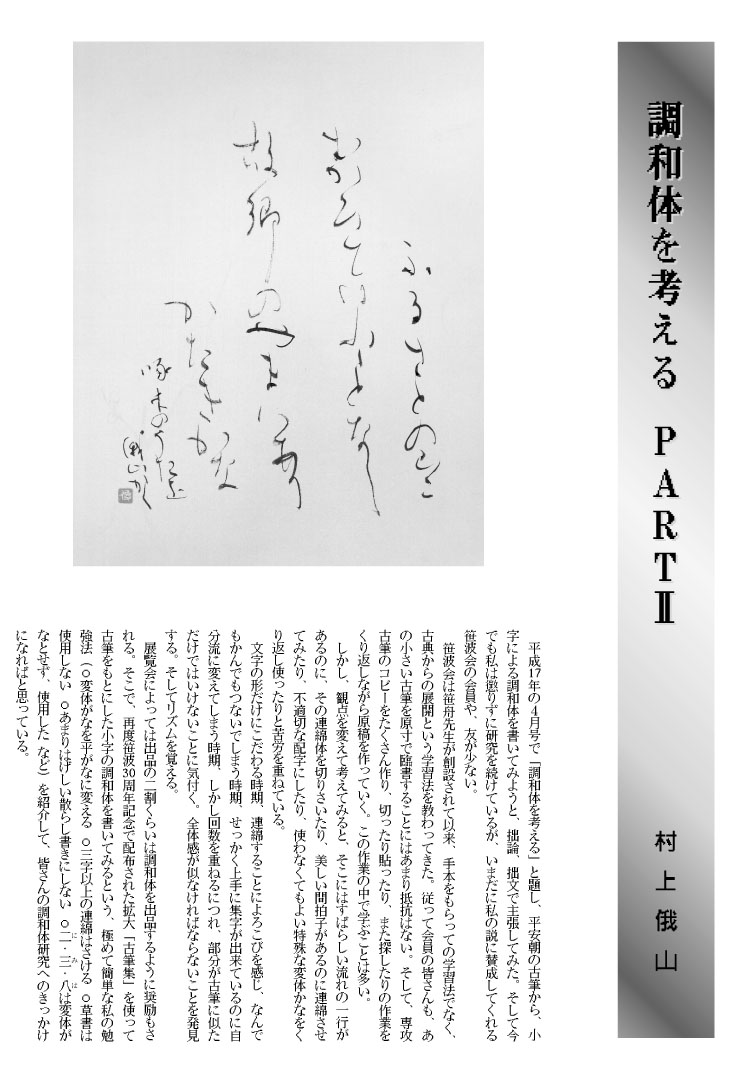 調和体を考える PARTⅡ
村上俄山
ふるさとの山に
むかひていふことなし
故郷のやまはあり
がたきかな
啄木のうた
俄山かく
平成17年の4月号で「調和体を考える」と題し、平安朝の古筆から、小
字による調和体を書いてみようと、拙論、拙文で主張してみた。そして今
でも私は懲りずに研究を続けているが、いまだに私の説に賛成してくれる
笹波会の会員や、友が少ない。
笹波会は笹舟先生が創設されて以来、手本をもらっての学習法でなく、
古典からの展開という学習法を教わってきた。従って会員の皆さんも、あ
の小さい古筆を原寸で臨書することにはあまり抵抗はない。そして、専攻
古筆のコピーをたくさん作り、切ったり貼ったり、また探したりの作業を
くり返しながら原稿を作っていく。この作業の中で学ぶことは多い。
しかし、観点を変えて考えてみると、そこにはすばらしい流れの一行が
あるのに、その連綿体を切りさいたり、美しい間拍子があるのに連綿させ
てみたり、不適切な配字にしたり、使わなくてもよい特殊な変体かなをく
り返し使ったりと苦労を重ねている。
文字の形だけにこだわる時期、連綿することによろこびを感じ、なんで
もかんでもつないでしまう時期、せっかく上手に集字が出来ているのに自
分流に変えてしまう時期、しかし回数を重ねるにつれ、部分が古筆に似た
だけではいけないことに気付く。全体感が似なければならないことを発見
する。そしてリズムを覚える。
展覧会によっては出品の二割くらいは調和体を出品するように奨励もさ
れる。そこで、再度笹波30周年記念で配布された拡大「古筆集」を使って
古筆をもとにした小字の調和体を書いてみるという、極めて簡単な私の勉
強法（○変体がなを平がなに変える ○三字以上の連綿はさける ○草書は
使用しない ○あまりはげしい散らし書きにしない ○二・三・八は変体が
なとせず、使用した など）を紹介して、皆さんの調和体研究へのきっかけ
になればと思っている。